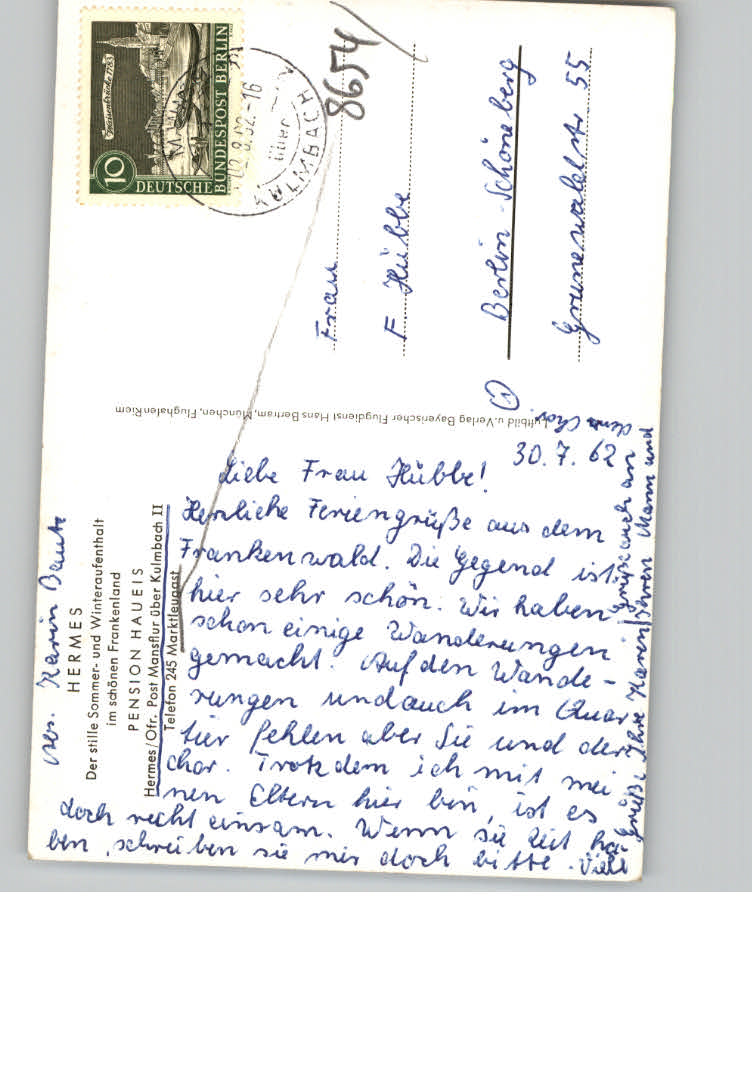 Abs. Karin Bautz
HERMES
Der stille Sommer- und Winteraufenthalt
im schönen Frankenland
PENSION HAUEIS
Hermes/Ofr. Post Mansflur über Kulmbach II
Telefon 245 Marktleugast
30. 7. 62
Liebe Frau Hübbe!
Herzliche Feriengrüße aus dem
Frankenwald. Die Gegend ist
hier sehr schön. Wir haben
schon einige Wanderungen
gemacht. Auf den Wande-
rungen und auch im Quar
tier fehlen aber Sie und der
Chor. Trotzdem ich mit mei
nen Eltern hier bin, ist es
doch recht einsam. Wenn sie Zeit ha-
ben, schreiben sie mir doch bitte. Viele
Grüße Ihre Karin
Grüße auch an Ihren Mann und
dem Chor.
Luftbild u. Verlag Bayerischer Flugdienst Hans Bertram, München, Flughafen Riem
DEUTSCHE
BUNDESPOST BERLIN
10
KULMBACH
über
8654
Frau
F. Hübbe
1
Berlin-Schöneberg
Grunewaldstr 55